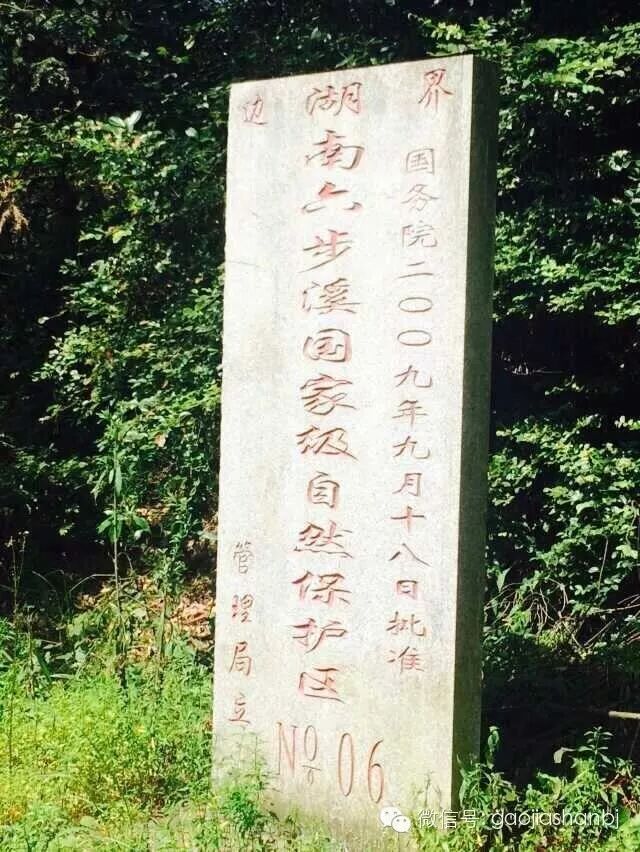 边 界
国务院二〇〇九年九月十八日批准
湖南六步溪国家级自然保护区
管理局立
No 06
微信号: gaojiashanbj